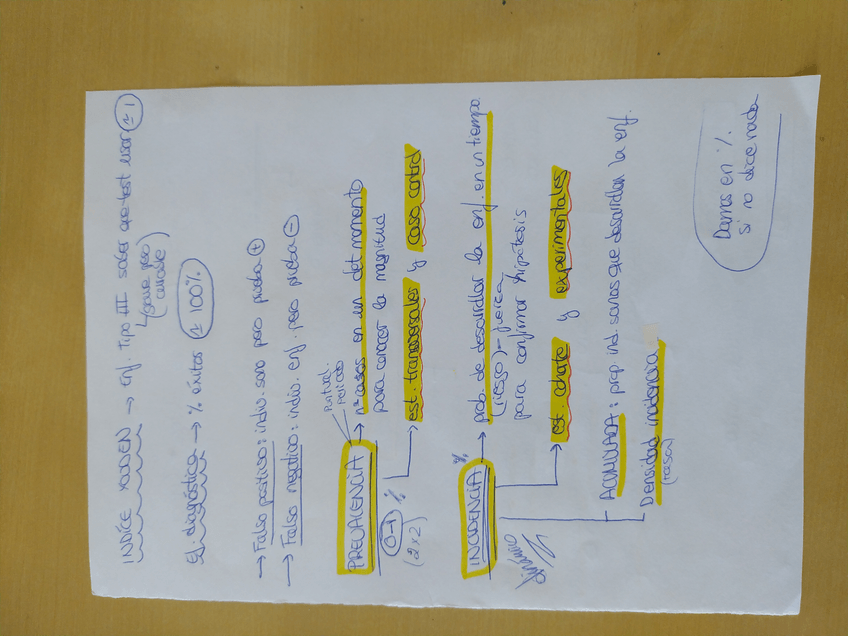 INDICE YOUDEN → enf. Tipo III saber que test usar ≃ 1
↳ grave pero curable
Ef. diagóstica → % éxitos ≃ 100%
→ Falso positivo: indiv. sano pero prueba ⊕
→ Falso negativo: indiv. enf. pero prueba ⊖
Puntual.
periodo
PREVALENCIA → nº casos en un det momento
0-1 % para conocer la magnitud
(2x2) → est. transversales y caso control
INCIDENCIA % → prob. de desarrollar la enf. en un tiempo
(riesgo) - fuerza
para confirmar hipótesis
→ est. cohorte y experimentales
ACUMULADA: prop ind. sanos que desarrollan la enf.
Densidad incidencia
(tasa)
Damos en %.
si no dice nada